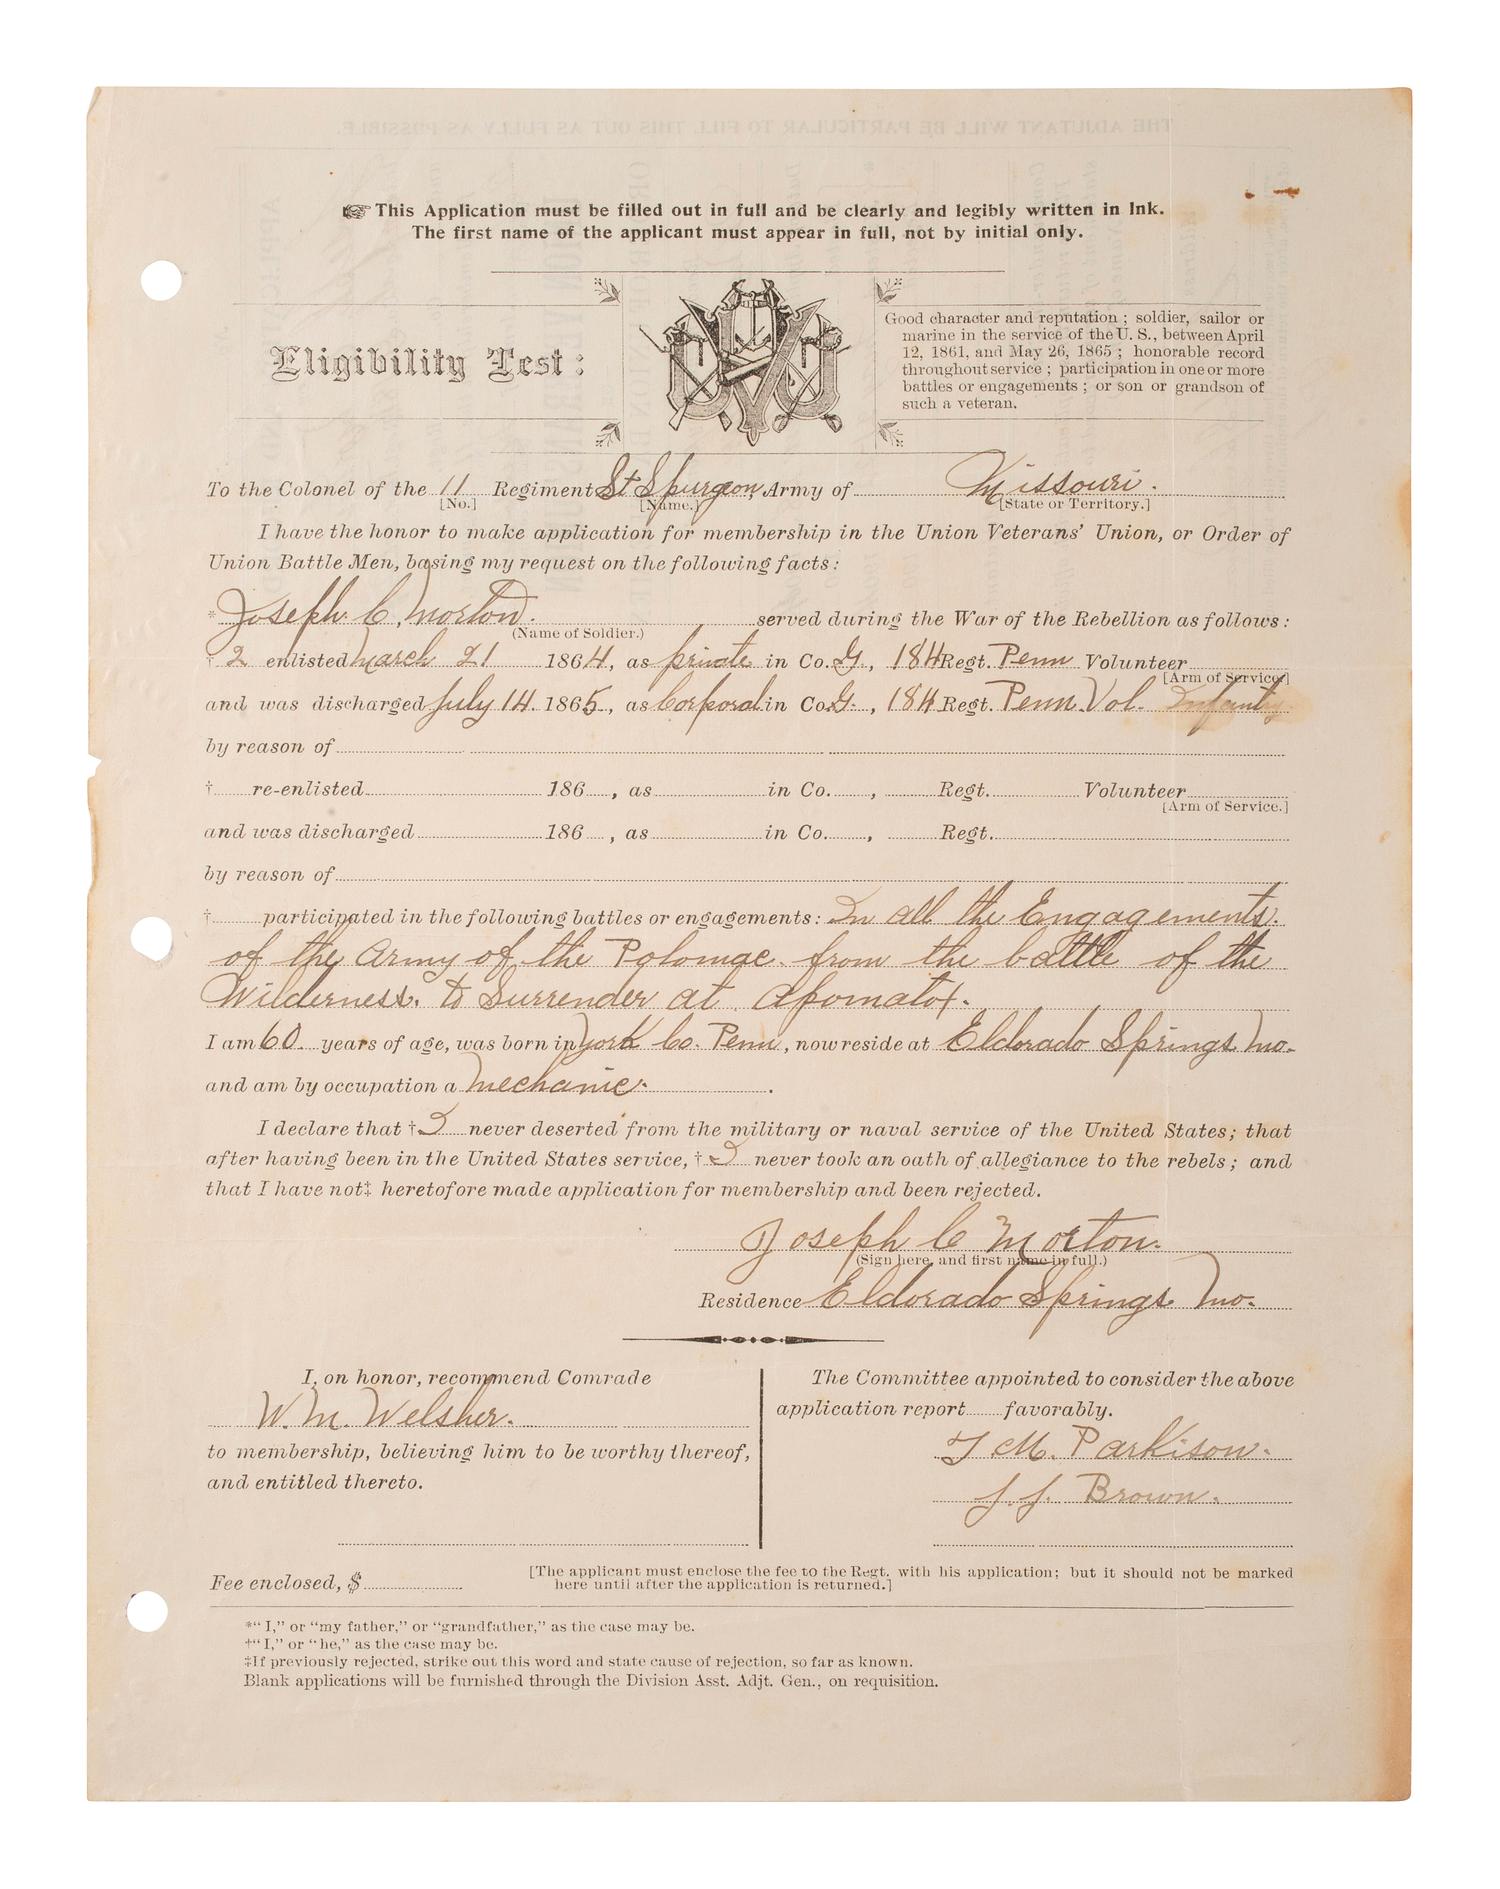 THE ADJUTANT WILL BE PARTICULAR TO FILL THIS OUT AS FULLY AS POSSIBLE.
☞ This Application must be filled out in full and be clearly and legibly written in Ink.
The first name of the applicant must appear in full, not by initial only.
Eligibility Test:
UVU
Good character and reputation; soldier, sailor or
marine in the service of the U. S., between April
12, 1861, and May 26, 1865; honorable record
throughout service; participation in one or more
battles or engagements; or son or grandson of
such a veteran.
To the Colonel of the 11 Regiment St Spurgeon, Army of Missouri.
[No.] [Name.] [State or Territory.]
I have the honor to make application for membership in the Union Veterans' Union, or Order of
Union Battle Men, basing my request on the following facts:
* Joseph C. Morton. served during the War of the Rebellion as follows:
(Name of Soldier.)
† I enlisted March 21 1864, as private in Co. G., 184 Regt. Penn Volunteer
[Arm of Service.]
and was discharged July 14. 1865, as Corporal in Co. G., 184 Regt. Penn. Vol. Infantry
by reason of
† re-enlisted 186 , as in Co. , Regt. Volunteer
[Arm of Service.]
and was discharged 186 , as in Co. , Regt.
by reason of
† participated in the following battles or engagements: In all the Engagements.
of the Army of the Potomac from the battle of the
Wilderness. to Surrender at Apomatox.
I am 60 years of age, was born in York Co. Penn, now reside at Eldorado Springs Mo.
and am by occupation a Mechanic.
I declare that † I never deserted from the military or naval service of the United States; that
after having been in the United States service, † I never took an oath of allegiance to the rebels; and
that I have not‡ heretofore made application for membership and been rejected.
Joseph C Morton.
(Sign here, and first name in full.)
Residence Eldorado Springs Mo.
I, on honor, recommend Comrade
W. M. Welsher.
to membership, believing him to be worthy thereof,
and entitled thereto.
The Committee appointed to consider the above
application report favorably.
M. Parkison.
J. J. Brown.
Fee enclosed, $
[The applicant must enclose the fee to the Regt. with his application; but it should not be marked
here until after the application is returned.]
*"I," or "my father," or "grandfather," as the case may be.
†"I," or "he," as the case may be.
‡If previously rejected, strike out this word and state cause of rejection, so far as known.
Blank applications will be furnished through the Division Asst. Adjt. Gen., on requisition.